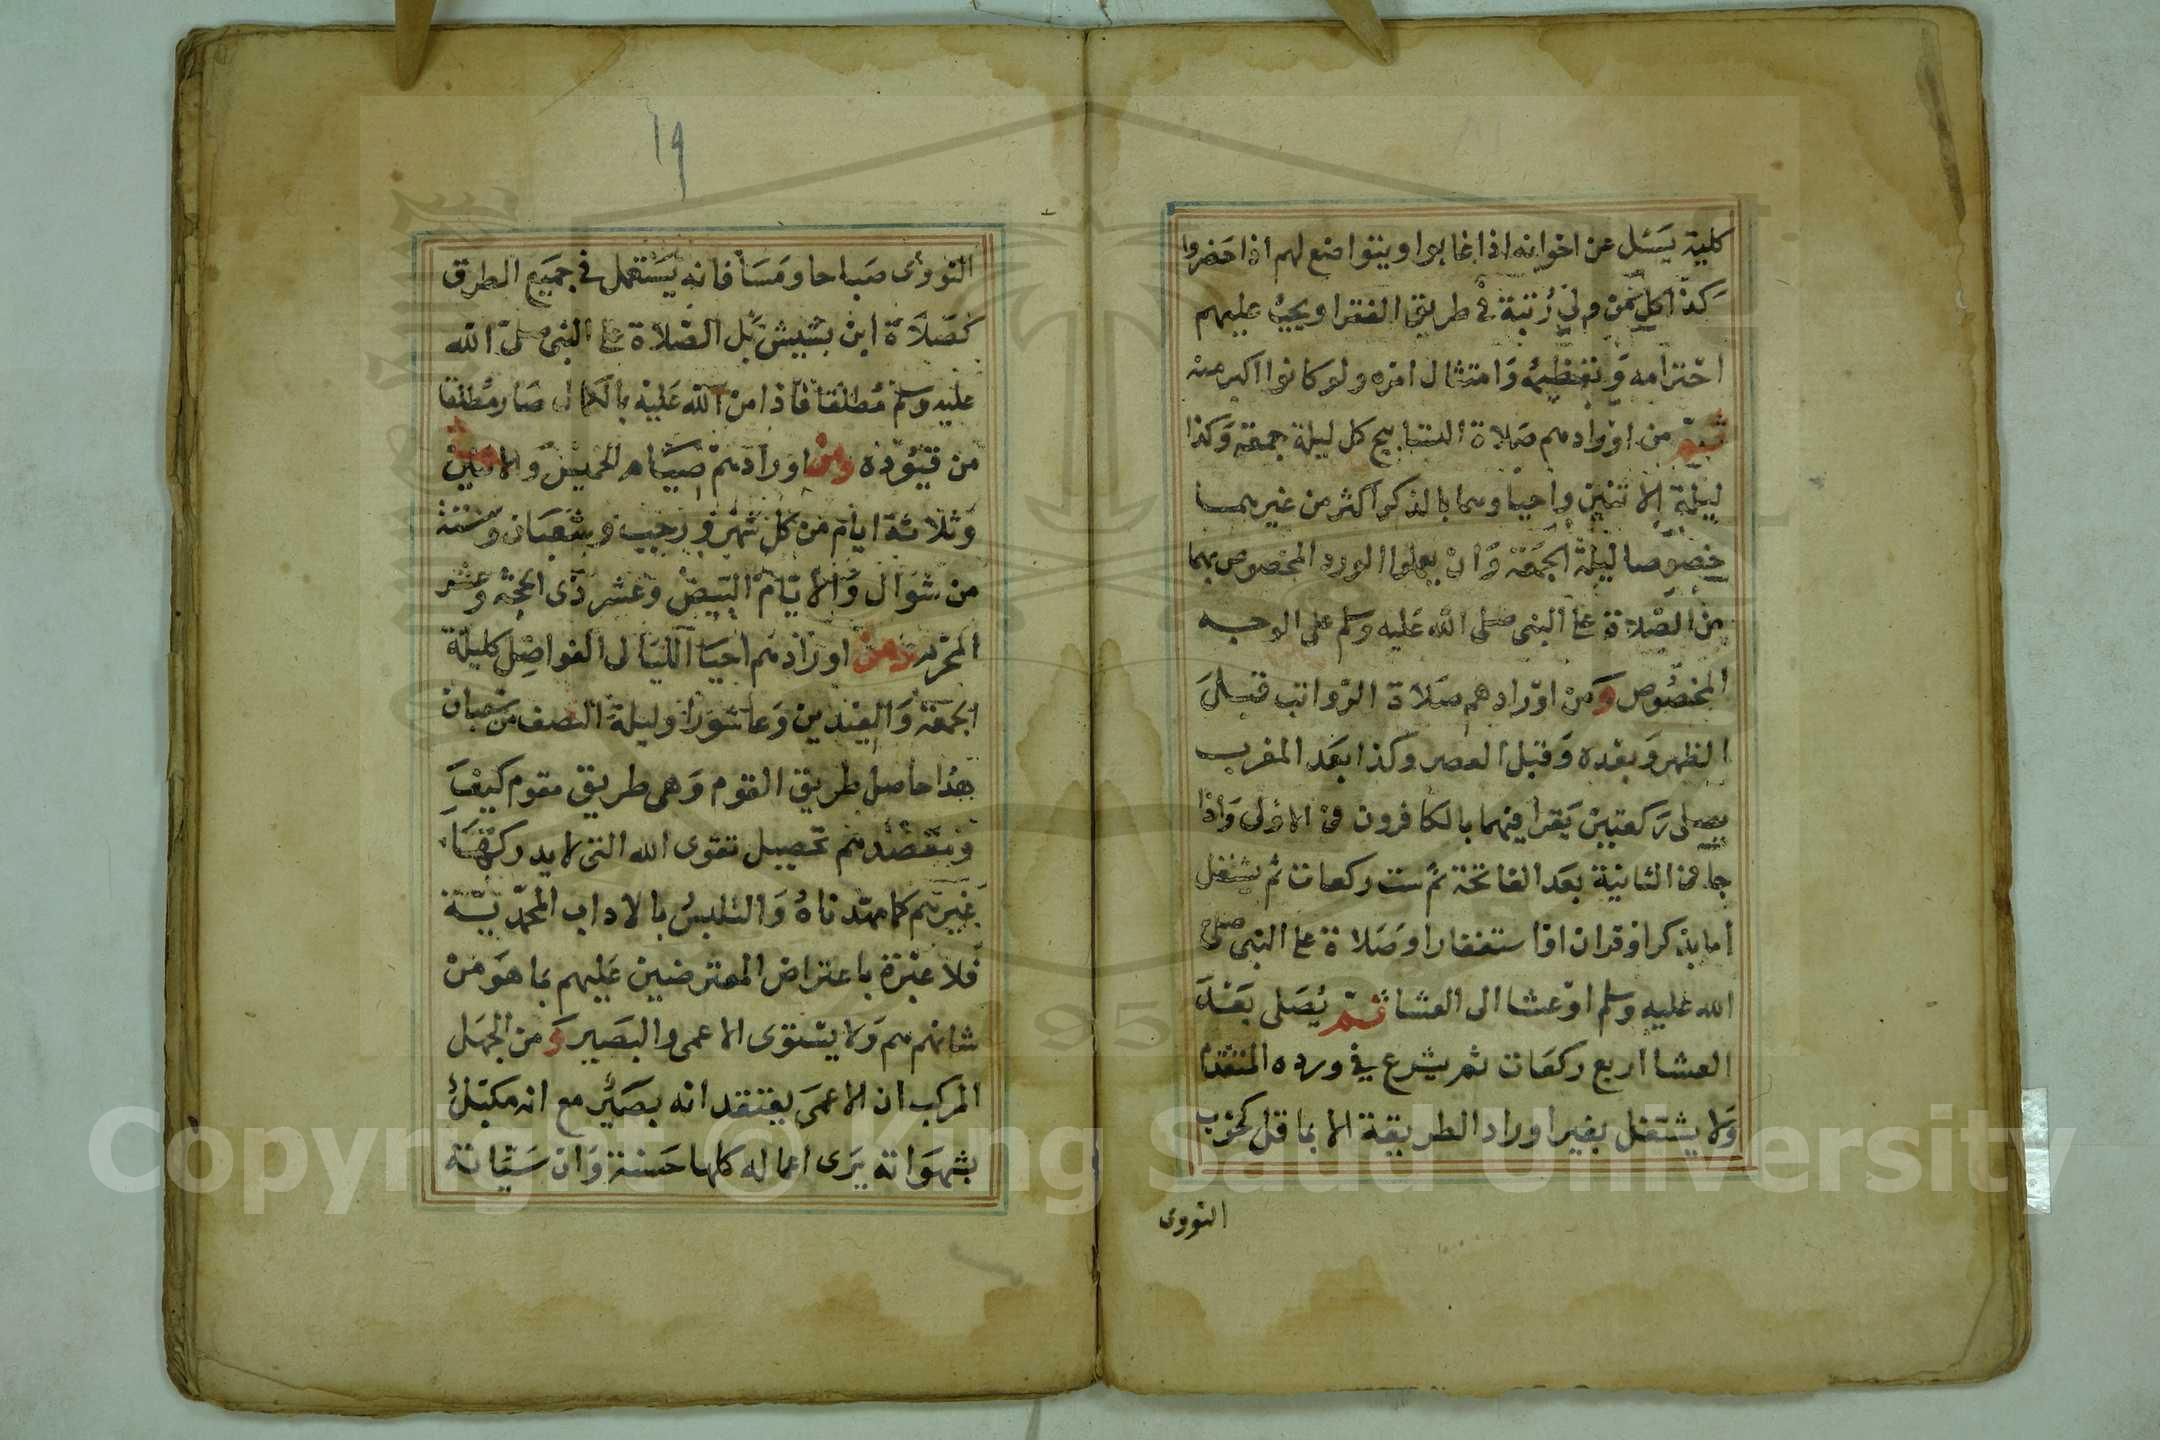 كلية يسئل عن اخوانه اذا غابوا ويتواضع لهم اذا حضروا
كذا كل من ولي رتبة في طريق الفقرا ويجب عليهم
احترامه وتعظيمه وامتثال امره ولو كانوا اكبر منه
ثم من اورادهم صلاة التسابيح كل ليلة جمعة وكذا
ليلة الاثنين واحياوهما بالذكر اكثر من غيرهما
خصوصا ليلة الجمعة وان يعملوا الورد المخصوص بهما
من الصلاة على النبي صلى الله عليه وسلم على الوجه
المخصوص ومن اورادهم صلاة الرواتب قبل
الظهر وبعده وقبل العصر وكذا بعد المغرب
يصلى ركعتين يقرا فيهما بالكافرون في الاولى واذا
جا في الثانية بعد الفاتحة ثم ست ركعات ثم يشتغل
اما بذكر او قران او استغفار او صلاة على النبي صلى
الله عليه وسلم او عشا الى العشا ثم يصلى بعد
العشا اربع ركعات ثم يشرع في ورده المتقدم
ولا يشتغل بغير اوراد الطريقة الا بما قل كحزب
النووى
١٩
النووى صباحا ومسا فانه يستعمل في جميع الطرق
كصلاة ابن بشيش بل الصلاة على النبي صلى الله
عليه وسلم مطلقا فاذا من الله عليه بالكمال صار مطلقا
من قيوده ومن اورادهم صيام الخميس والاثنين
وثلاثة ايام من كل شهر في رجب وشعبان وستة
من شوال والايام البيض وعشر ذى الحجة وعشر
المحرم ومن اورادهم احيا الليالى الفواضل كليلة
الجمعة والعيدين وعاشورا وليلة النصف من شعبان
هذا حاصل طريق القوم وهى طريق مقوم كيف
ومقصدهم تحصيل تقوى الله التى لا يدركها
غيرهم كما مهدناه والتلبس بالاداب المحمدية
فلا عبرة باعتراض المعترضين عليهم بما هو من
شانهم هم ولا يستوى الاعمى والبصير ومن الجهل
المركب ان الاعمى يعتقد انه بصير مع انه مكبل
بشهواته يرى اعماله كلها حسنة وان سيئاته
Copyright © King Saud University
195